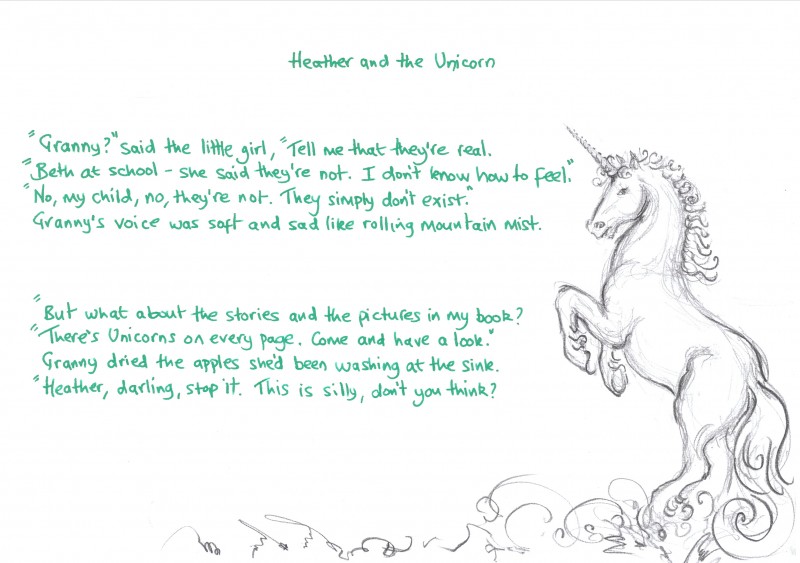 Heather and the Unicorn
"Granny?" said the little girl, "Tell me that they're real.
"Beth at school - she said they're not. I don't know how to feel."
"No, my child, no, they're not. They simply don't exist."
Granny's voice was soft and sad like rolling mountain mist.
"But what about the stories and the pictures in my book?
"There's Unicorns on every page. Come and have a look."
Granny dried the apples she'd been washing at the sink.
"Heather, darling, stop it. This is silly, don't you think?